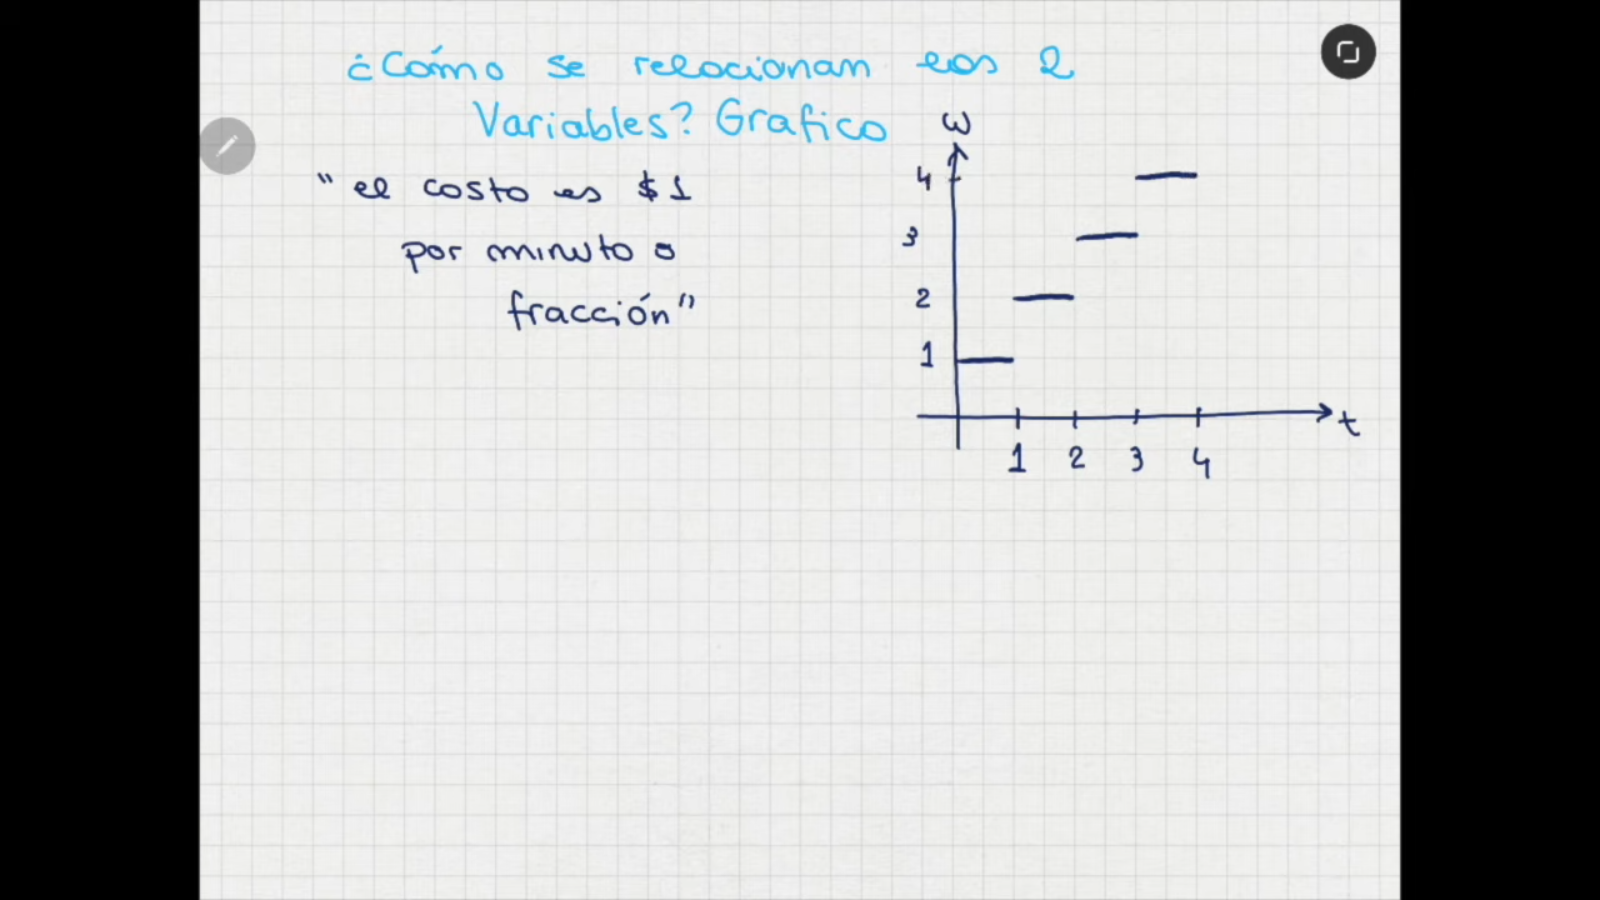 ¿Cómo se relacionan las 2
Variables? Grafico
"el costo es $1
por minuto o
fracción"
ω
4
3
2
1
1 2 3 4
t